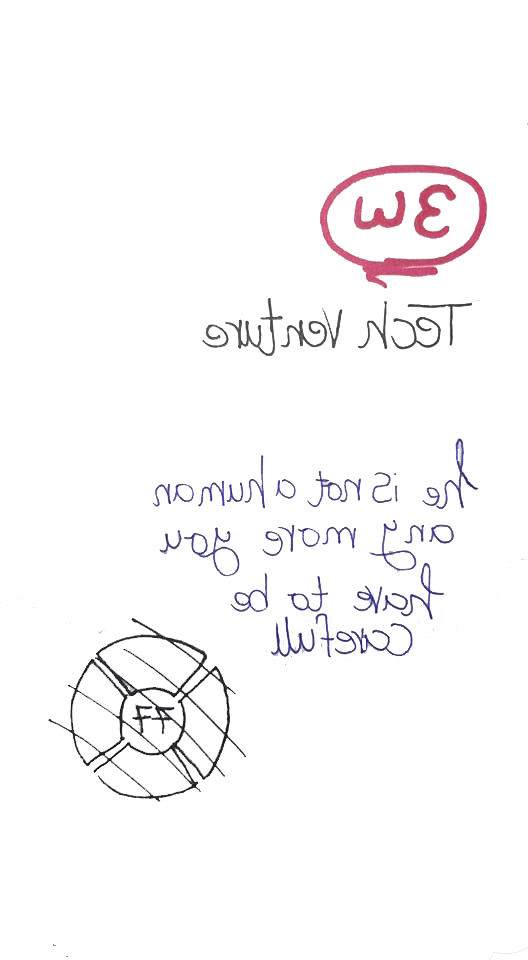 3W
Tech Venture
he is not a human
any more you
have to be
carefull
FF